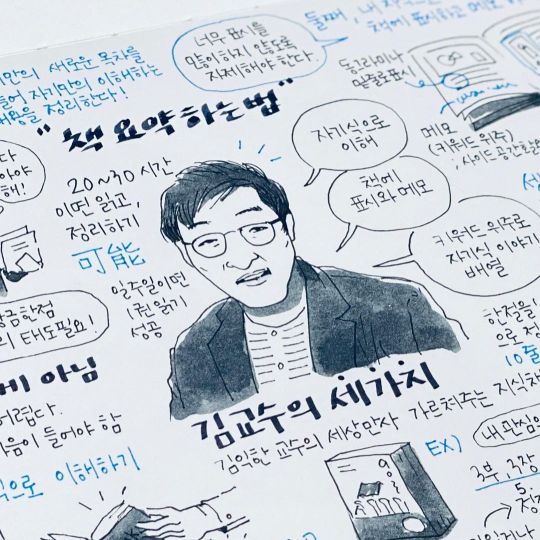 만의 새로운 목차를
들어 자기만의 이해하는
내용을 정리한다!
너무 표시를
많이하지 않도록
자제해야 한다.
둘째, 내
책에 표시하고 메모
동그라미나
밑줄로 표시
메모
(키워드 위주)
; 사이드공간활용
"책 요약하는법"
20~30시간
이면 읽고,
정리하기
可能
일주일이면
1권읽기
성공
자기식으로
이해
책에
표시와 메모
키워드 위주로
자기식 이야기
배열
한 점
의 태도필요!
게 아님
어렵다.
마음이 들어야 함
식으로 이해하기
김교수의 세가지
김익한 교수의 세상만사 가르쳐주는 지식채
한절을
으로 정
10줄
내 관심의
EX)
3부 3장
5.